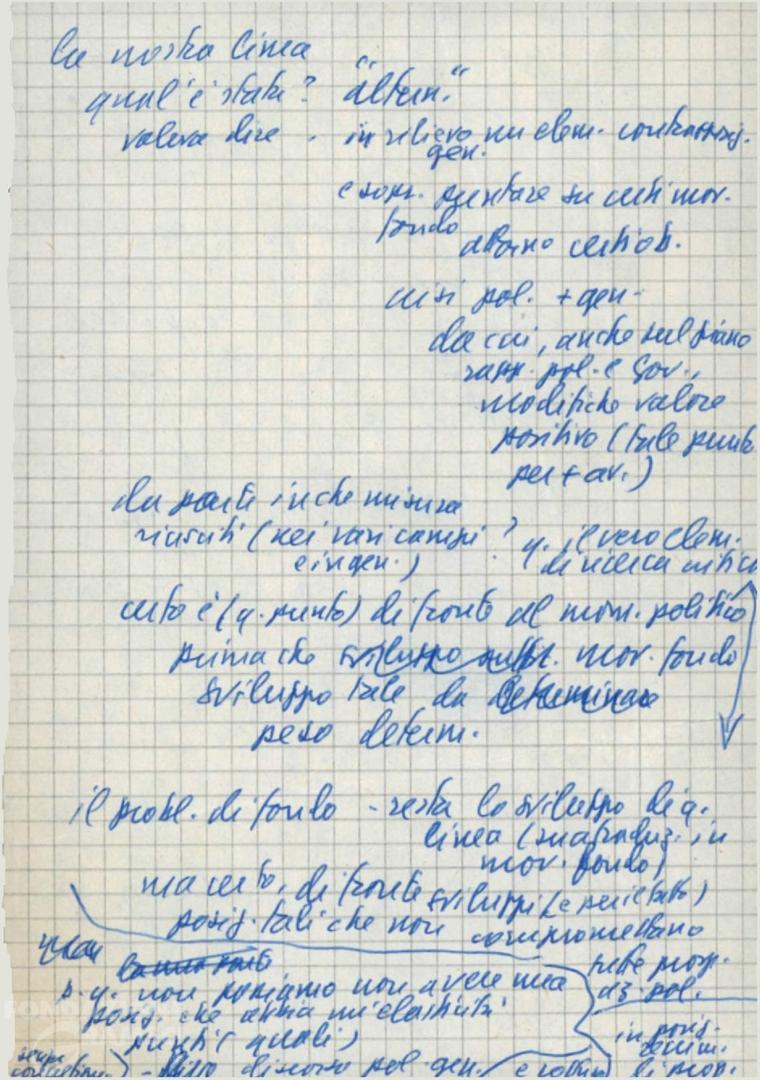 la nostra linea
qual'è stata? "altern."
voleva dire - in rilievo un elem. contrapposiz.
gen.
e sopr. puntare su certi mov.
fondo
attorno certi ob.
crisi pol. + gen.
da cui, anche sul piano
rapp. pol. e Gov.,
modifiche valore
positivo (tale punto
per + av.)
da parte in che misura
riusciti (nei vari campi ? q. il vero elem.
e in gen.) di ricerca critica
certo è (q. punto) di fronte al mom. politico
prima che mov. fondo
sviluppo tale da
peso determ.
il probl. di fondo - resta lo sviluppo di q.
linea (sua traduz. in
mov. fondo)
ma certo, di fronte sviluppi (e
posiz. tali che non compromettano
p. q. non possiamo non avere una
posiz. che abbia un'elasticità az. pol.
punti (quali) in posiz.
discorso pol. gen. e di mov.